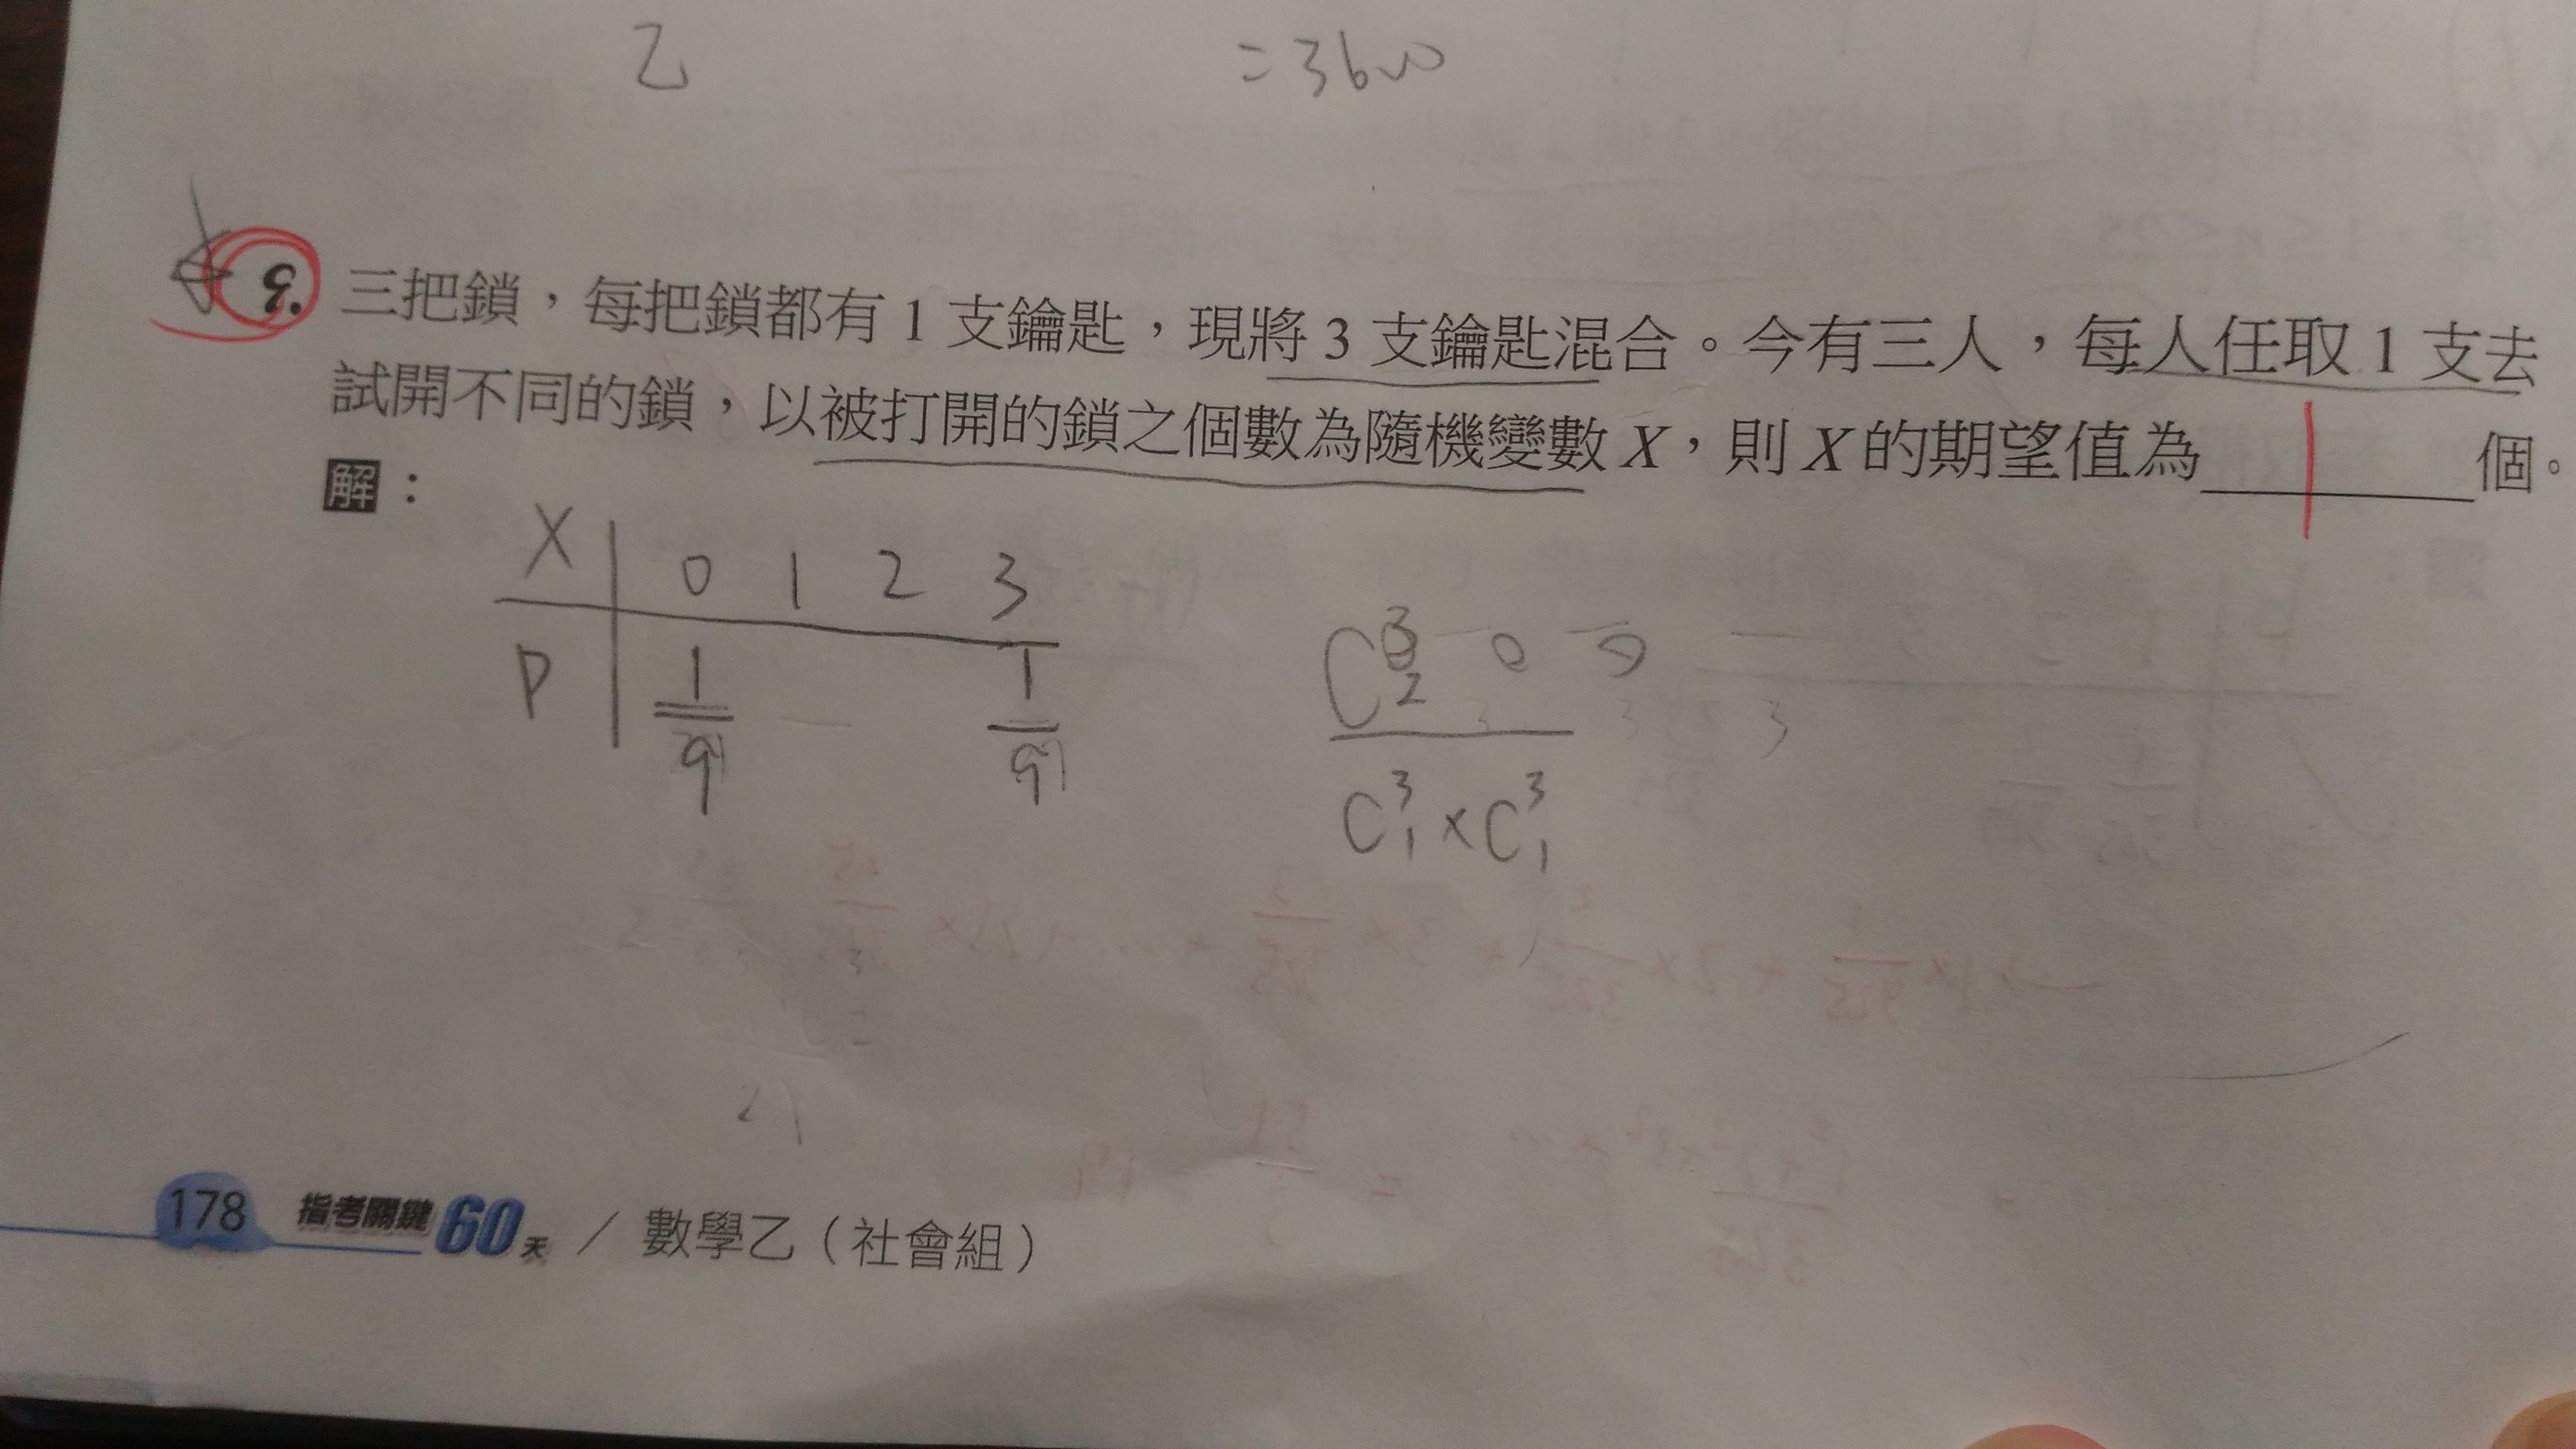 乙 =3600
9. 三把鎖，每把鎖都有 1 支鑰匙，現將 3 支鑰匙混合。今有三人，每人任取 1 支去
試開不同的鎖，以被打開的鎖之個數為隨機變數 X，則 X 的期望值為 1 個。
解：
X 0 1 2 3
P 1/9 1/9
C 3 2
C 3 1 × C 3 1
178 指考關鍵60天 / 數學乙（社會組）